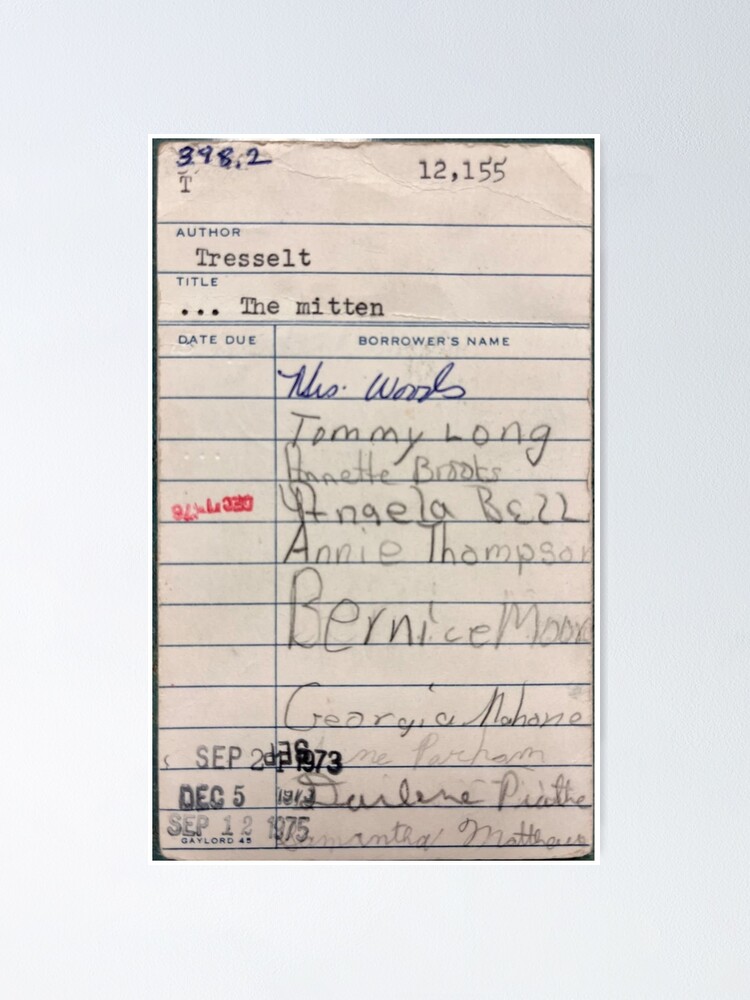 398.2
T 12,155
AUTHOR
Tresselt
TITLE
... The mitten
DATE DUE BORROWER'S NAME
Mrs. Woods
Tommy Long
Annette Brooks
Angela BELL
Annie Thompson
Bernice Moore
Georgia Mahone
SEP 1973 Parham
DEC 5 1973 Darlene
SEP 12 1975 Samantha Matthews
GAYLORD 45